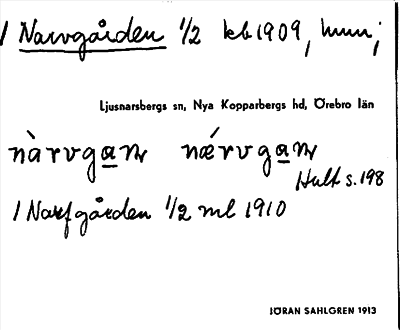 1 Narvgården 1/2 kb 1909, hmm;
Ljusnarsbergs sn, Nya Kopparbergs hd, Örebro län
nàrvgan nǽrvgan
Hult s. 198
1 Narfgården 1/2 ml 1910
JÖRAN SAHLGREN 1913